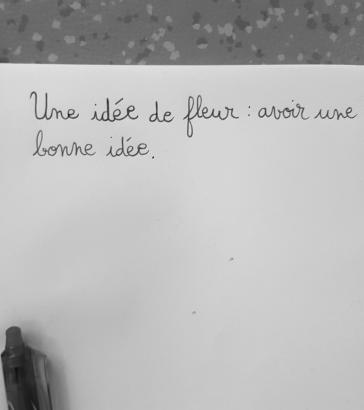 Une idée de fleur : avoir une
bonne idée.